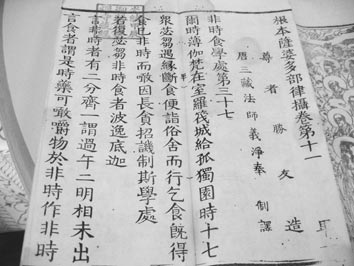 根本薩婆多部律攝卷第十一
尊者勝友造
唐三藏法師義淨奉制譯
非時食學處第三十七
爾時薄伽梵在室羅筏城給孤獨園時十七
衆苾芻遇緣斷食便詣俗舍而行乞食既得
食已非時而噉因長貪招譏制斯學處
若復苾芻非時食者波逸底迦
言非時者有二分齊一謂過午二明相未出
言食者謂是時藥可噉嚼物於非時作非時